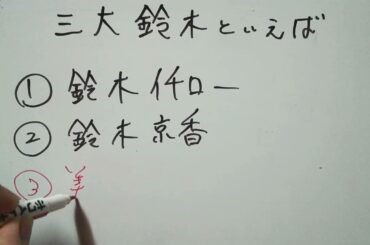 三大鈴木といえば
① 鈴木仟ロー
② 鈴木京香
③